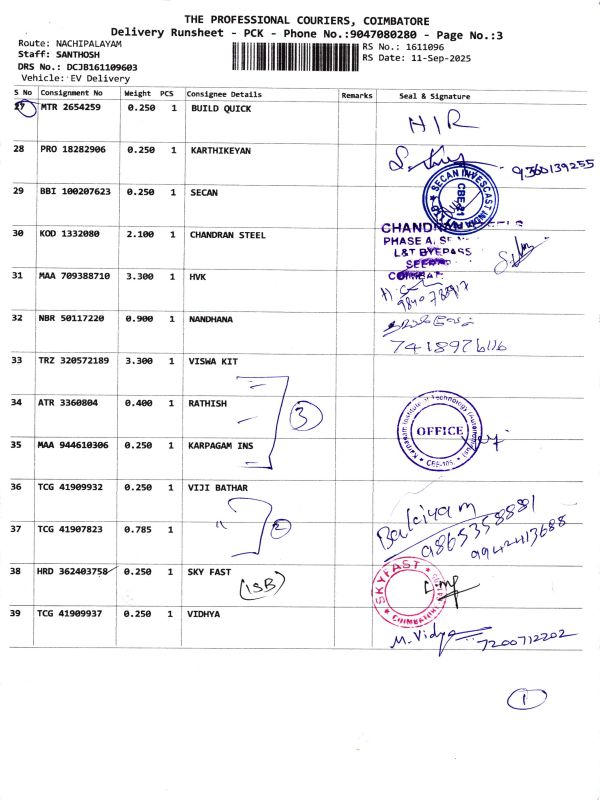 THE PROFESSIONAL COURIERS, COIMBATORE
Delivery Runsheet - PCK - Phone No.:9047080280 - Page No.:3
Route: NACHIPALAYAM
RS No.: 1611096
Staff: SANTHOSH
RS Date: 11-Sep-2025
DRS No.: DCJB161109603
Vehicle: EV Delivery
S No Consignment No Weight PCS Consignee Details Remarks Seal & Signature
27 MTR 2654259 0.250 1 BUILD QUICK
28 PRO 18282906 0.250 1 KARTHIKEYAN 9360139255
29 BBI 100207623 0.250 1 SECAN
SECAN INVESCAST INDIA
30 KOD 1332080 2.100 1 CHANDRAN STEEL
PHASE A,
L&T BYPASS
31 MAA 709388710 3.300 1 HVK
32 NBR 50117220 0.900 1 NANDHANA
33 TRZ 320572189 3.300 1 VISWA KIT
34 ATR 3360804 0.400 1 RATHISH
3
35 MAA 944610306 0.250 1 KARPAGAM INS
OFFICE
36 TCG 41909932 0.250 1 VIJI BATHAR
37 TCG 41907823 0.785 1
2
9865358881
9942413688
38 HRD 362403758 0.250 1 SKY FAST
(ISB)
SKYFAST
39 TCG 41909937 0.250 1 VIDHYA
M. Vidya 7200712202
1